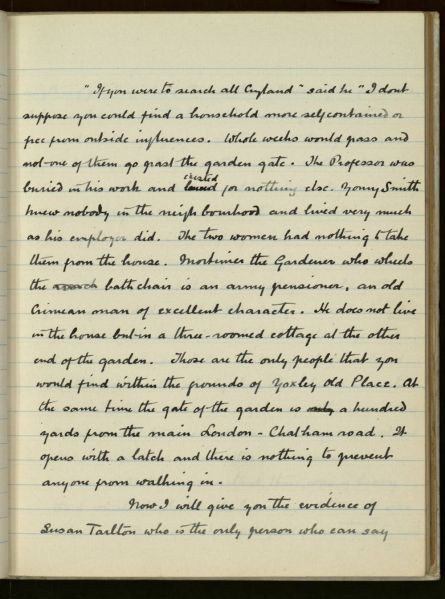 "If you were to search all England" said he "I dont
suppose you could find a household more selfcontained or
free from outside influences. Whole weeks would pass and
not one of them go past the garden gate. The Professor was
existed
buried in his work and for nothing else. Young Smith
knew nobody in the neighbourhood and lived very much
as his employer did. The two women had nothing to take
them from the house. Mortimer the Gardener who wheels
the bath chair is an army pensioner, an old
Crimean man of excellent character. He does not live
in the house but in a three-roomed cottage at the other
end of the garden. Those are the only people that you
would find within the grounds of Yoxley Old Place. At
the same time the gate of the garden is a hundred
yards from the main London-Chatham road. It
opens with a latch and there is nothing to prevent
anyone from walking in.
Now I will give you the evidence of
Susan Tarlton who is the only person who can say